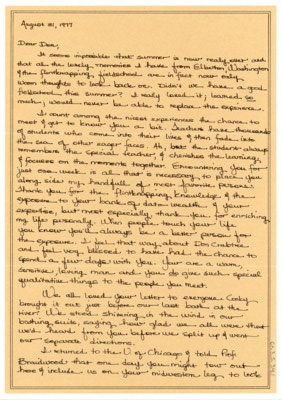 August 31, 1977
Dear Don,
It seems impossible that summer is now really over and
that all the lovely memories I have from Elberton, Washington
& the flintknapping fieldschool are in fact now only
warm thoughts to look back on. Didn't we have a good
fieldschool this summer? I really loved it; learned so
much; would never be able to replace the experience.
I count among the nicest experiences the chance to
meet & get to know you a bit. Teachers have thousands
of students who come into their lives & then fade into
the sea of other eager faces. Ah, but the student always
remembers the special teacher, & cherishes the learning,
& focuses on the moments together. Encountering you for
just one week is all that is necessary to place you
along side my handful of most favorite persons.
Thank you for the flintknapping knowledge & the
exposure to your bank of data wealth & your
expertise, but most especially, thank you for enriching
my life personally. When people touch your life
you know you'll always be a better person for
the exposure. I feel that way about Don Crabtree
and feel very blessed to have had the chance to
spend a few days with you. You are a warm,
sensitive, loving man and you do give such special
qualitative things to the people you meet.
We all loved your letter to everyone. Corky
brought it out just before our last bath at the
river. We stood shivering in the wind in our
bathing suits, saying how glad we all were that
we'd heard from you before we split up & went
our separate directions.
I returned to the U of Chicago & told Prof.
Braidwood that one day you might tour out
here & include us on your midwestern leg, to look